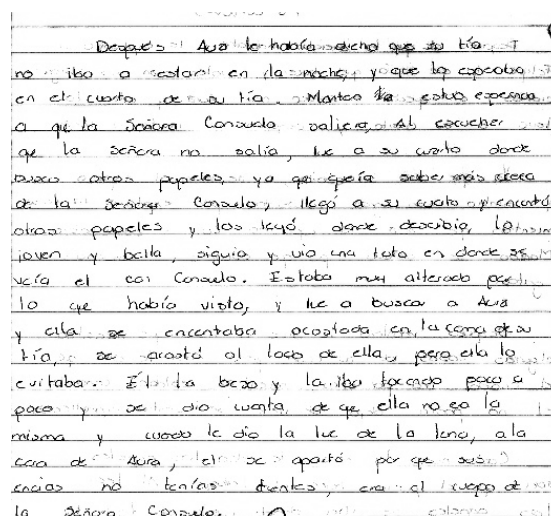 Después Aura le había dicho que su tía
no iba a estar en la noche, y que lo esperaba
en el cuarto de su tía. Montea estuvo esperando
a que la Señora Consuelo saliera, Al escuchar
qe la señora no salía, fue a su cuarto donde
busco otros papeles, ya qe quería saber más acerca
de la Señora Consuelo, llegó a su cuarto y encontró
otros papeles y los leyó donde describio, lo
joven y bella, siguio y vio una foto en donde se
veía el con Consuelo. Estaba muy alterado por
lo qe había visto, y fue a buscar a Aura
y ella se encontaba acostada en la cama de su
tía, se acostó al lado de ella, pero ella lo
evitaba. Él la beso y la iba tocando poco a
poco y se dio cuenta de qe ella no era la
misma y cuando le dio la luz de la luna, a la
cara de Aura, el se apartó por qe sus
encias no tenías dientes, era el cuerpo de
la Señora Consuelo.